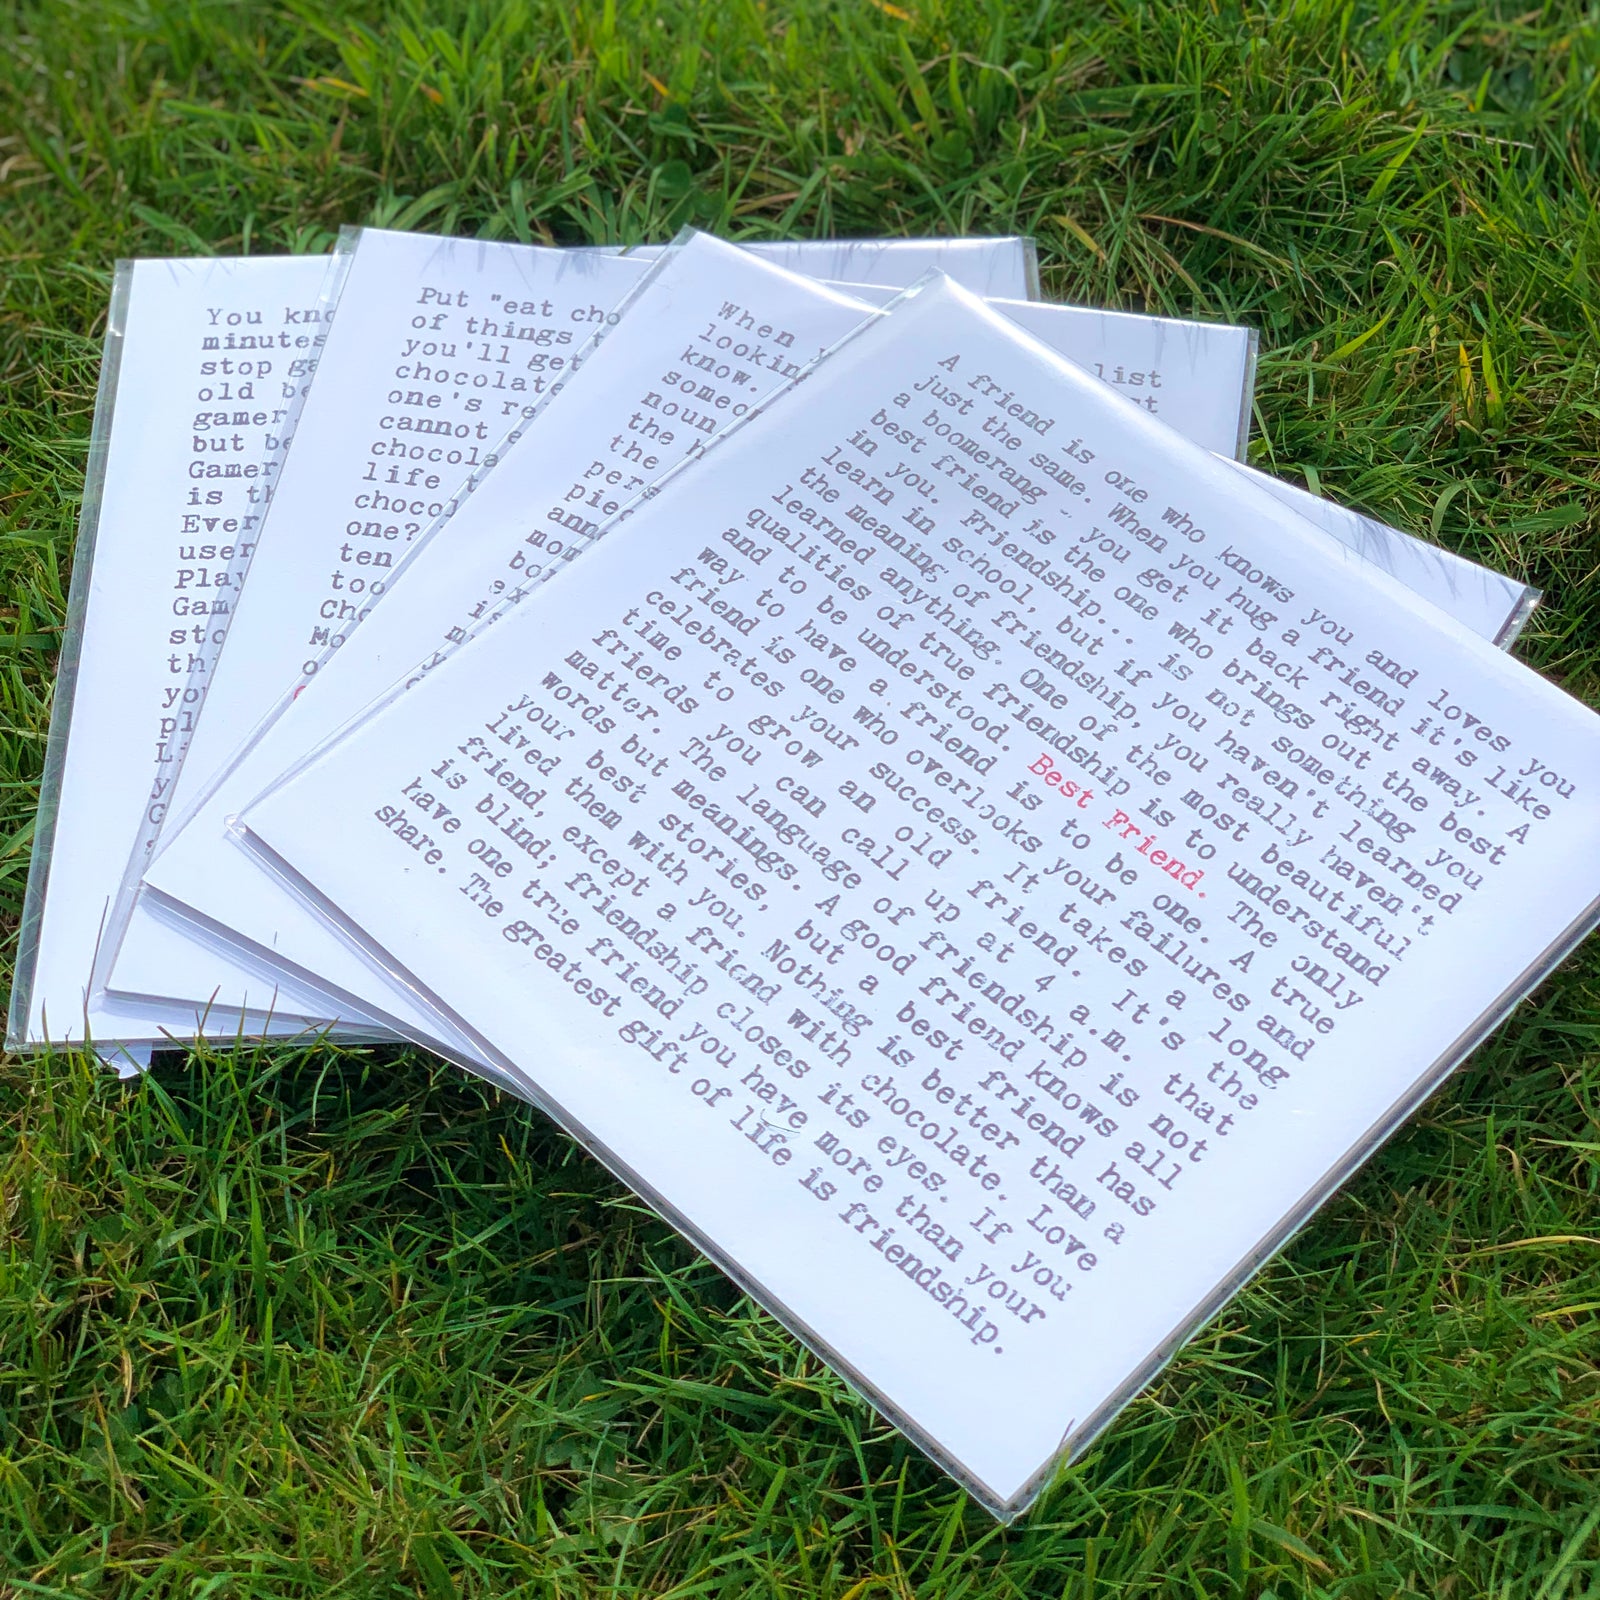 You
minutes
stop
old
gamer.
but
Gamer
is
Ever
user
Play
Put "eat
of things
you'll get
chocolate
one's
cannot
life
one?
ten
too
When
looking
know.
noun
the
the
list
A friend is one who knows you and loves you
just the same. When you hug a friend it's like
a boomerang - you get it back right away. A
best friend is the one who brings out the best
in you. Friendship... is not something you
learn in school, but if you haven't learned
the meaning of friendship, you really haven't
learned anything. One of the most beautiful
qualities of true friendship is to understand
and to be understood. Best Friend. The only
way to have a friend is to be one. A true
friend is one who overlooks your failures and
celebrates your success. It takes a long
time to grow an old friend. It's the
friends you can call up at 4 a.m. that
matter. The language of friendship is not
words but meanings. A good friend knows all
your best stories, but a best friend has
lived them with you. Nothing is better than a
friend, except a friend with chocolate. Love
is blind; friendship closes its eyes. If you
have one true friend you have more than your
share. The greatest gift of life is friendship.